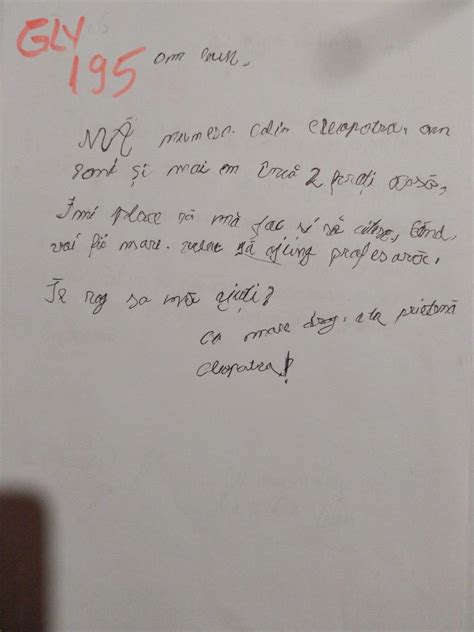 GLY
195 om bun.
Mă numesc. Calin Cleopatra. am
și mai am încă 2 frați acasă,
Îmi place să mă joc si să citesc, Când
voi fii mare. vreau să ajung profesoră.
Te rog sa mă ajuți?
cu mare drag. a ta prietenă
Cleopatra!